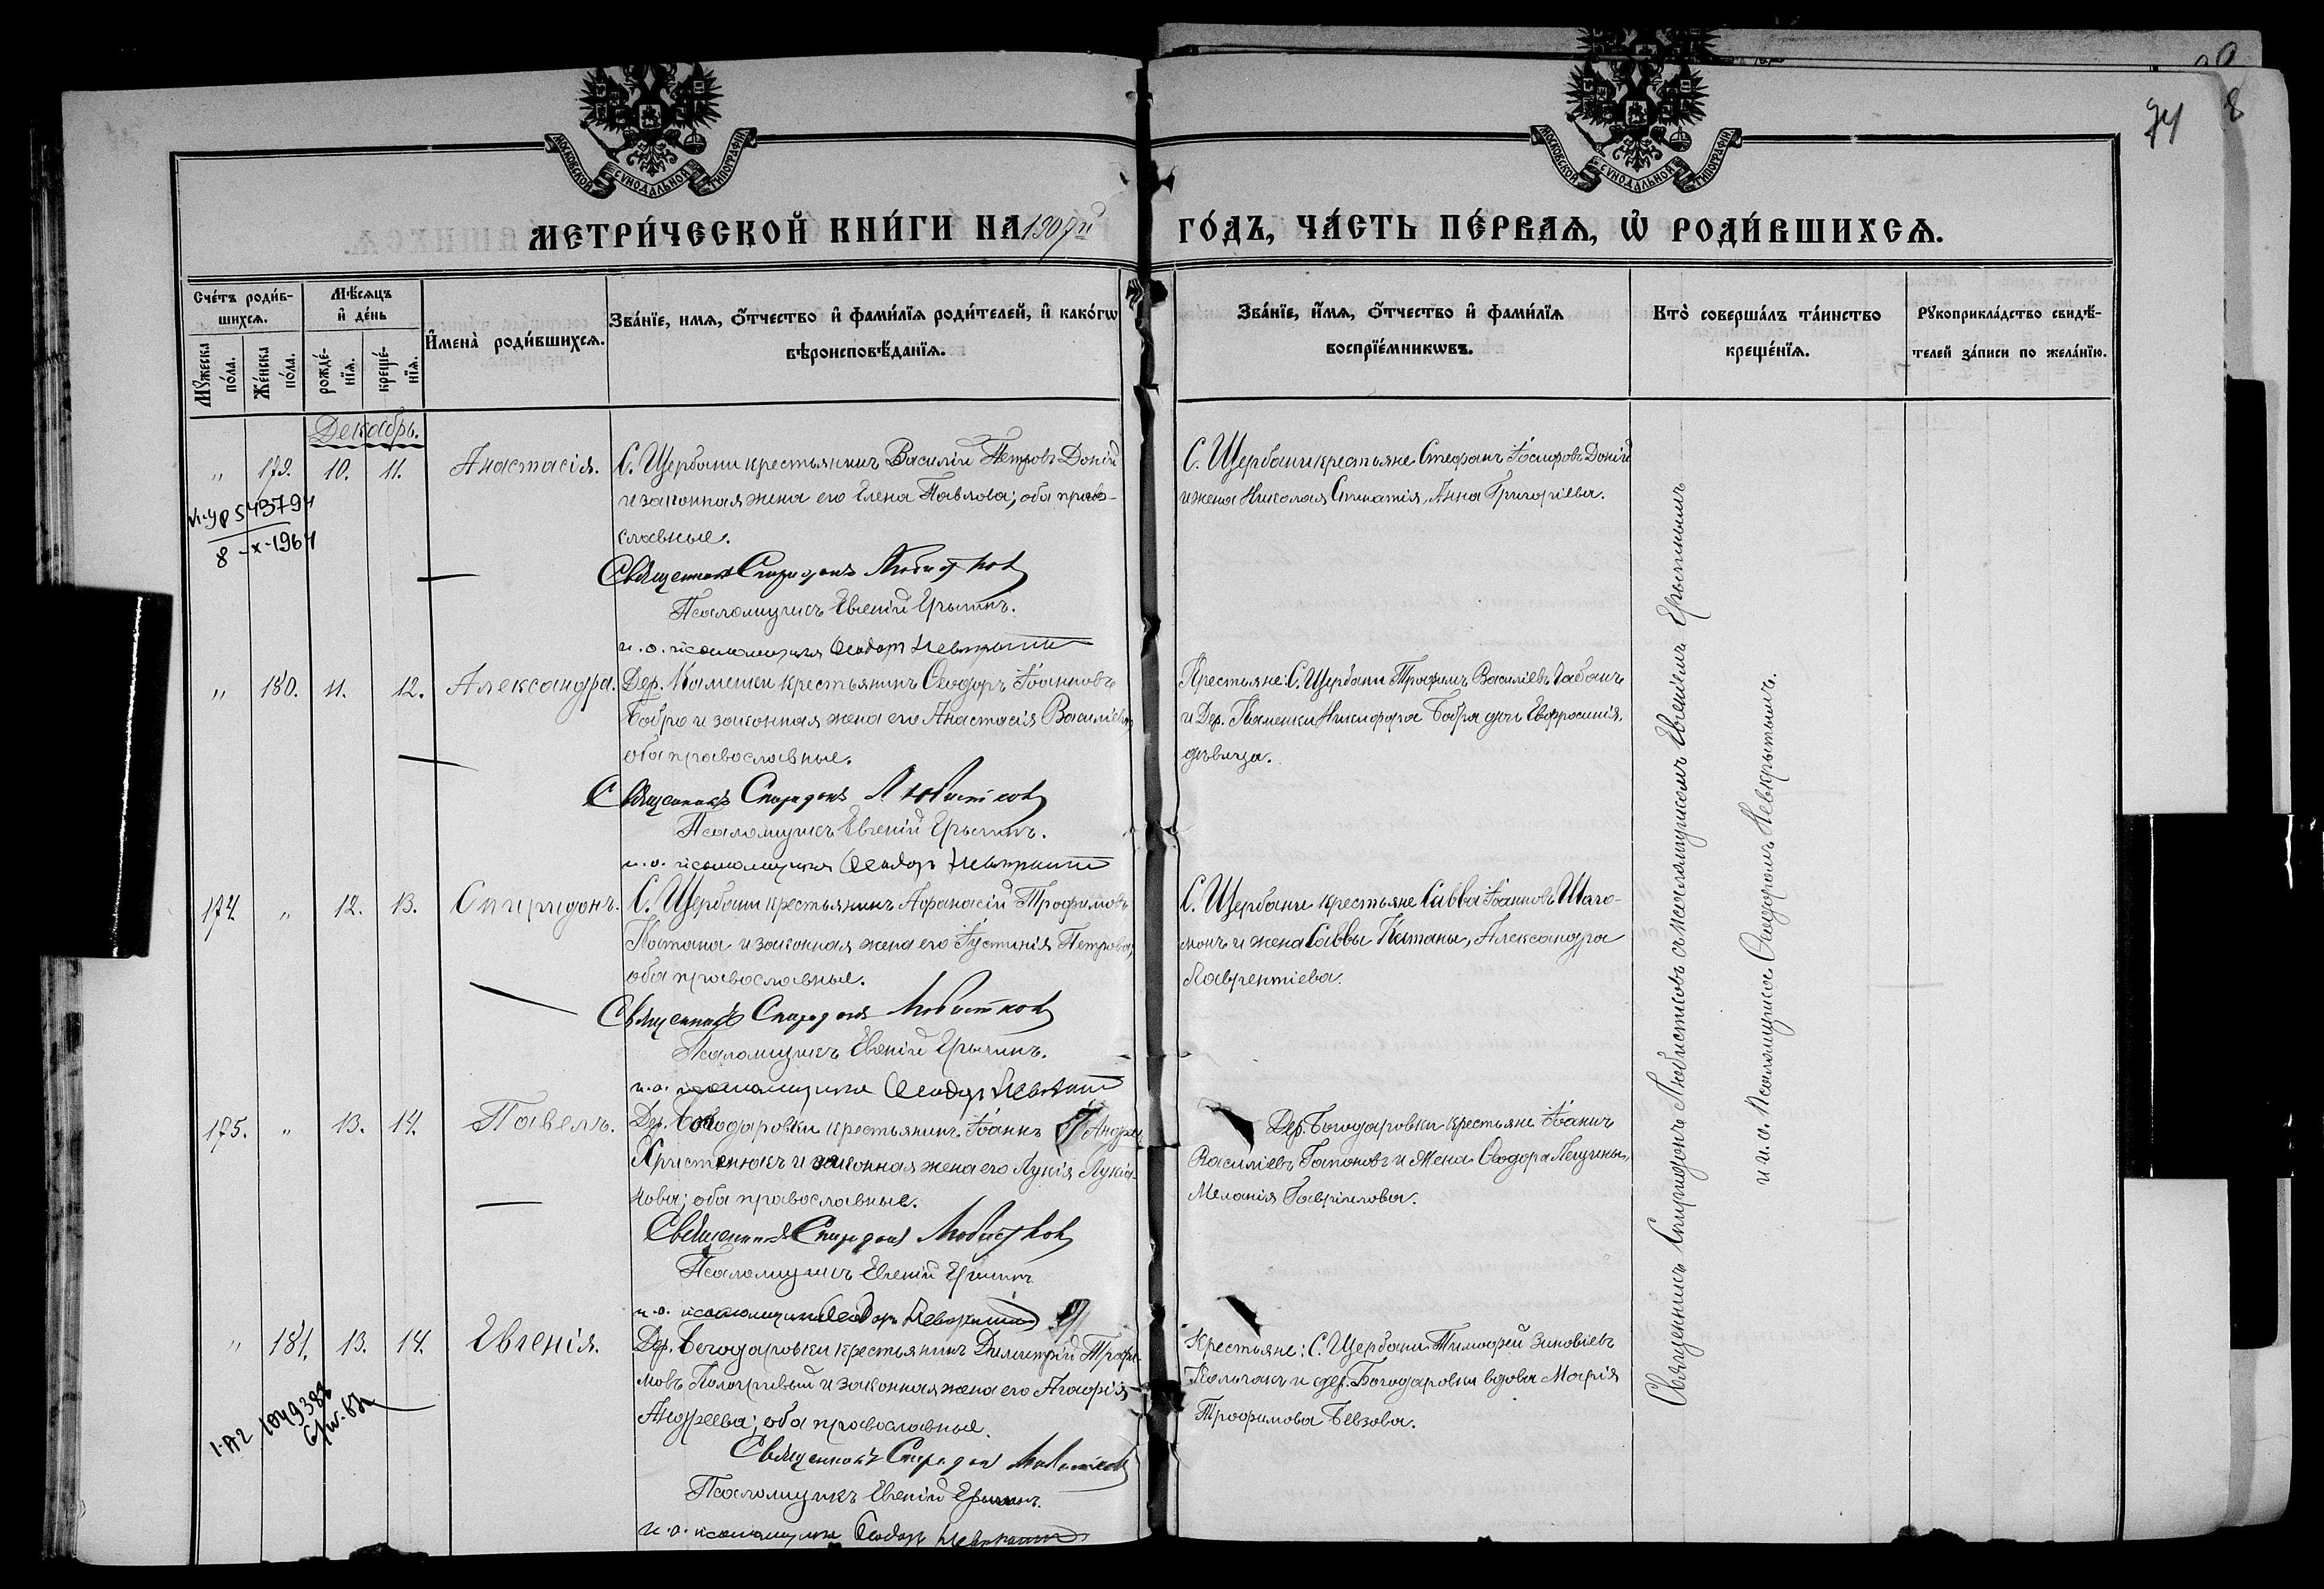 74
МОСКОВСКОЙ СѴНОДАЛЬНОЙ ТИПОГРАФІИ
МОСКОВСКОЙ СѴНОДАЛЬНОЙ ТИПОГРАФІИ
МЕТРИ́ЧЕСКОЙ КНИ́ГИ НА 1907й
ГО́ДЪ, ЧА́СТЬ ПЕ́РВАѦ, Ѡ РОДИ́ВШИХСѦ.
Сче́тъ роди́в-
шихсѧ.
Мꙋжеска по́ла.
Же́нска по́ла.
Мѣ́сѧцъ
и҆ де́нь
рожде́-
нїѧ.
креще́-
нїѧ.
И҆мена̀ роди́вшихсѧ.
Зва́нїе, имѧ, ѻ҆́тчество и҆ фами́лїѧ роди́телей, и҆ како́гѡ
вѣроисповѣ́данїѧ.
Зва́нїе, и҆́мѧ, ѻ҆́тчество и҆ фами́лїѧ
воспрїе́мникѡвъ.
Кто̀ соверша́лъ та́инство
креще́нїѧ.
Рꙋкоприкла́дство свидѣ́-
телей за́писи по жела́нїю.
Декабрь.
„ 179. 10. 11. Анастасія.
С. Щербани крестьянинъ Василій Петровъ Доній
и законная жена его Елена Павлова; оба право-
славные.
Священникъ Спиридонъ Любистков
Псаломщикъ Евгеній Ерыгинъ.
и.о. псаломщика Ѳеодоръ Невкрытый
С. Щербани крестьяне Стефанъ Іосифовъ Доній
и жена Николая Стратія, Анна Григоріева.
543794
8-X-1964
„ 180. 11. 12. Александра.
Дер. Каменки крестьянинъ Ѳеодоръ Іоанновъ
Бобро и законная жена его Анастасія Василіева,
оба православные.
Священникъ Спиридонъ Любистков
Псаломщикъ Евгеній Ерыгинъ.
и.о. псаломщика Ѳеодоръ Невкрытый
Крестьяне: С. Щербани Трофимъ Василіевъ
и Дер. Каменки Никифора Бобра дочь Евфросинія,
дѣвица.
174. „ 12. 13. Спиридонъ.
С. Щербани крестьянинъ Афанасій Трофимовъ
Катана и законная жена его Іустинія Петрова,
оба православные.
Священникъ Спиридонъ Любистков
Псаломщикъ Евгеній Ерыгинъ.
и.о. псаломщика Ѳеодоръ Невкрытый
С. Щербани крестьяне Савва Іоанновъ Шаго-
монъ и жена Саввы Катаны, Александра
Лаврентіева.
175. „ 13. 14. Павелъ.
Дер. Богодаровки крестьянинъ Іоаннъ Андреевъ
Христенюкъ и законная жена его Лукія Лукіа-
нова; оба православные.
Священникъ Спиридонъ Любистков
Псаломщикъ Евгеній Ерыгинъ
и.о. псаломщика Ѳеодоръ Невкрытый
Дер. Богодаровки крестьяне Іоаннъ
Василіевъ Гапоновъ и жена Ѳеодора Лещины,
Меланія Гавріилова.
„ 181. 13. 14. Евгенія.
Дер. Богодаровки крестьянинъ Димитрій Трофи-
мовъ Полохливый и законная жена его Агафія
Андреева; оба православные.
Священникъ Спиридон Любистков
Псаломщикъ Евгеній Ерыгинъ.
и.о. псаломщика Ѳеодоръ Невкрытый
Крестьяне: С. Щербани Тимофей Зиновіевъ
Колпакъ и дер. Богодаровки вдова Марія
Трофимова Бевзова.
Священникъ Спиридонъ Любистковъ съ псаломщикомъ Евгеніемъ Ерыгинымъ
и и.о. псаломщика Ѳеодоромъ Невкрытымъ.